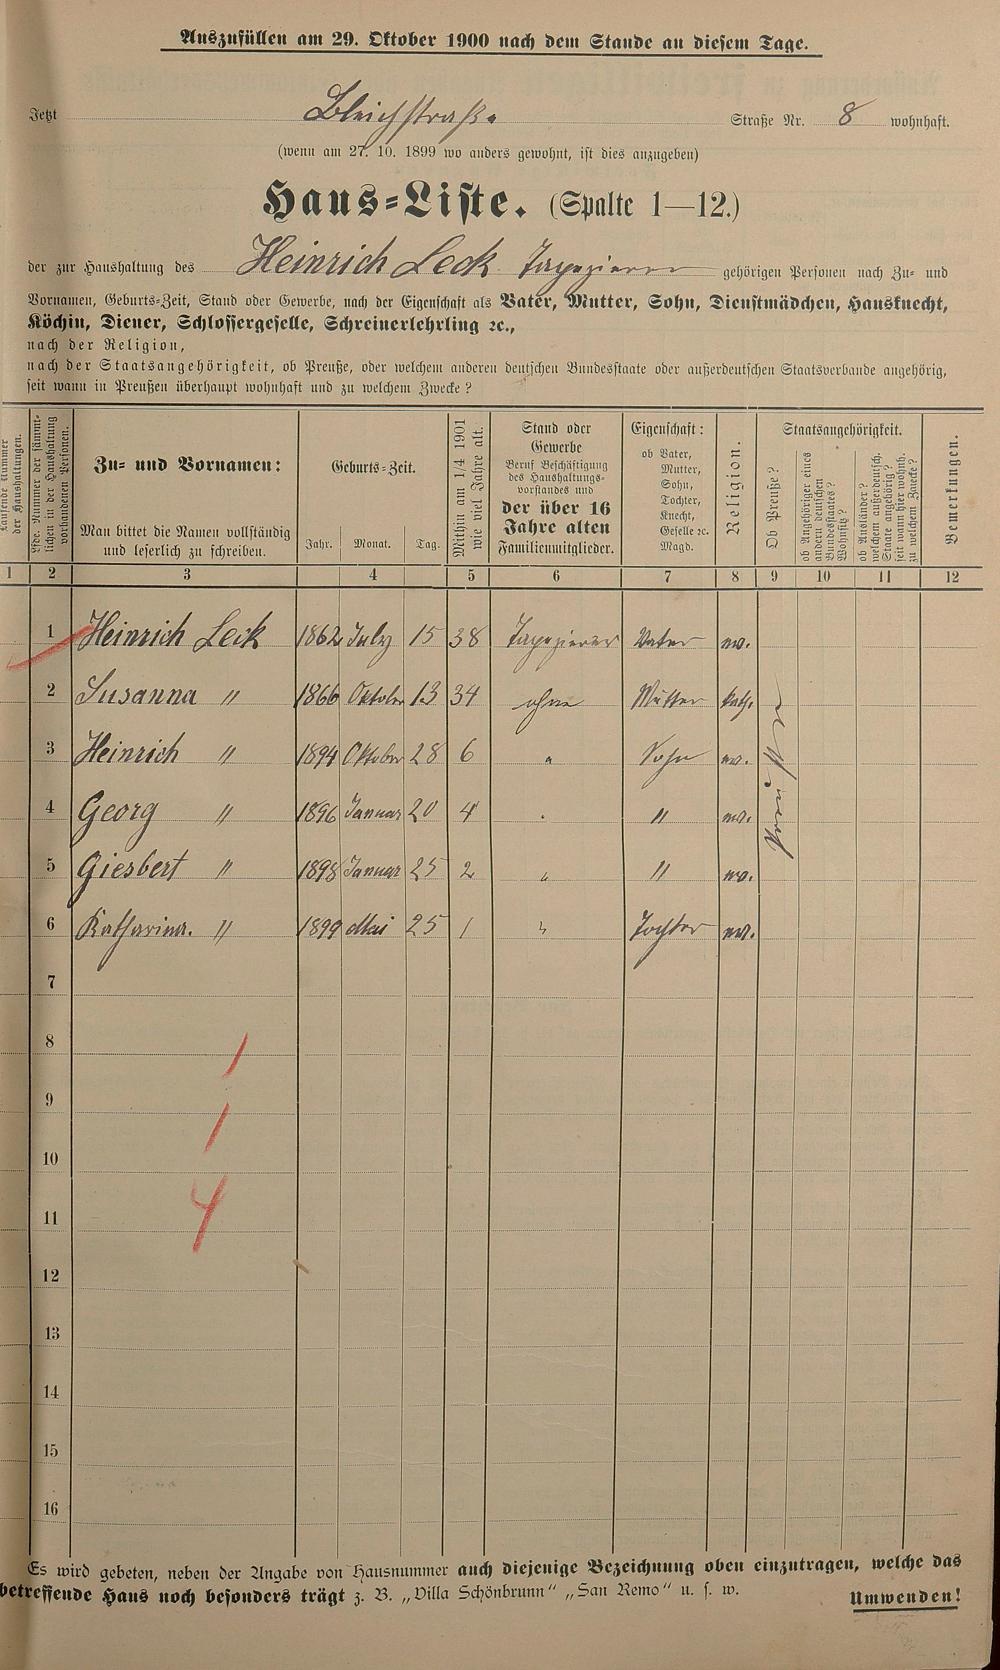 Auszufüllen am 29. Oktober 1900 nach dem Stande an diesem Tage.
Jetzt Bleichstraße Straße Nr. 8 wohnhaft.
(wenn am 27. 10. 1899 wo anders gewohnt, ist dies anzugeben)
Haus-Liste. (Spalte 1—12.)
der zur Haushaltung des Heinrich Leck Tapezierer gehörigen Personen nach Zu- und
Vornamen, Geburts-Zeit, Stand oder Gewerbe, nach der Eigenschaft als Vater, Mutter, Sohn, Dienstmädchen, Hausknecht,
Köchin, Diener, Schlossergeselle, Schreinerlehrling ꝛc.,
nach der Religion,
nach der Staatsangehörigkeit, ob Preuße, oder welchem anderen deutschen Bundesstaate oder außerdeutschen Staatsverbande angehörig,
seit wann in Preußen überhaupt wohnhaft und zu welchem Zwecke?
Laufende Nummer
der Haushaltungen.
Lfde. Nummer der sämmt-
lichen in der Haushaltung
vorhandenen Personen.
Zu- und Vornamen:
Man bittet die Namen vollständig
und leserlich zu schreiben.
Geburts-Zeit.
Jahr. Monat. Tag.
Mithin am 1/4 1901
wie viel Jahre alt.
Stand oder
Gewerbe
Beruf Beschäftigung
des Haushaltungs-
vorstandes und
der über 16
Jahre alten
Familienmitglieder.
Eigenschaft:
ob Vater,
Mutter,
Sohn,
Tochter,
Knecht,
Geselle ꝛc.
Magd.
Religion.
Staatsangehörigkeit.
Ob Preuße?
ob Angehöriger eines
andern deutschen
Bundesstaates?
Wohnsitz?
ob Ausländer?
welchem außerdeutsch.
Staate angehörig?
seit wann hier wohnh.
zu welchem Zwecke?
Bemerkungen.
1 2 3 4 5 6 7 8 9 10 11 12
1 Heinrich Leck 1862 July 15 38 Tapezierer Vater ev.
2 Susanna " 1866 Oktober 13 34 ohne Mutter kath.
3 Heinrich " 1894 Oktober 28 6 " Sohn ev.
4 Georg " 1896 Januar 20 4 " " ev.
5 Giesbert " 1898 Januar 25 2 " " ev.
6 Katharina. " 1899 Mai 25 1 " Tochter ev.
Preuße
7
8 1
9
10 1
11 4
12
13
14
15
16
Es wird gebeten, neben der Angabe von Hausnummer auch diejenige Bezeichnung oben einzutragen, welche das
betreffende Haus noch besonders trägt z. B. „Villa Schönbrunn" „San Remo" u. s. w.
Umwenden!